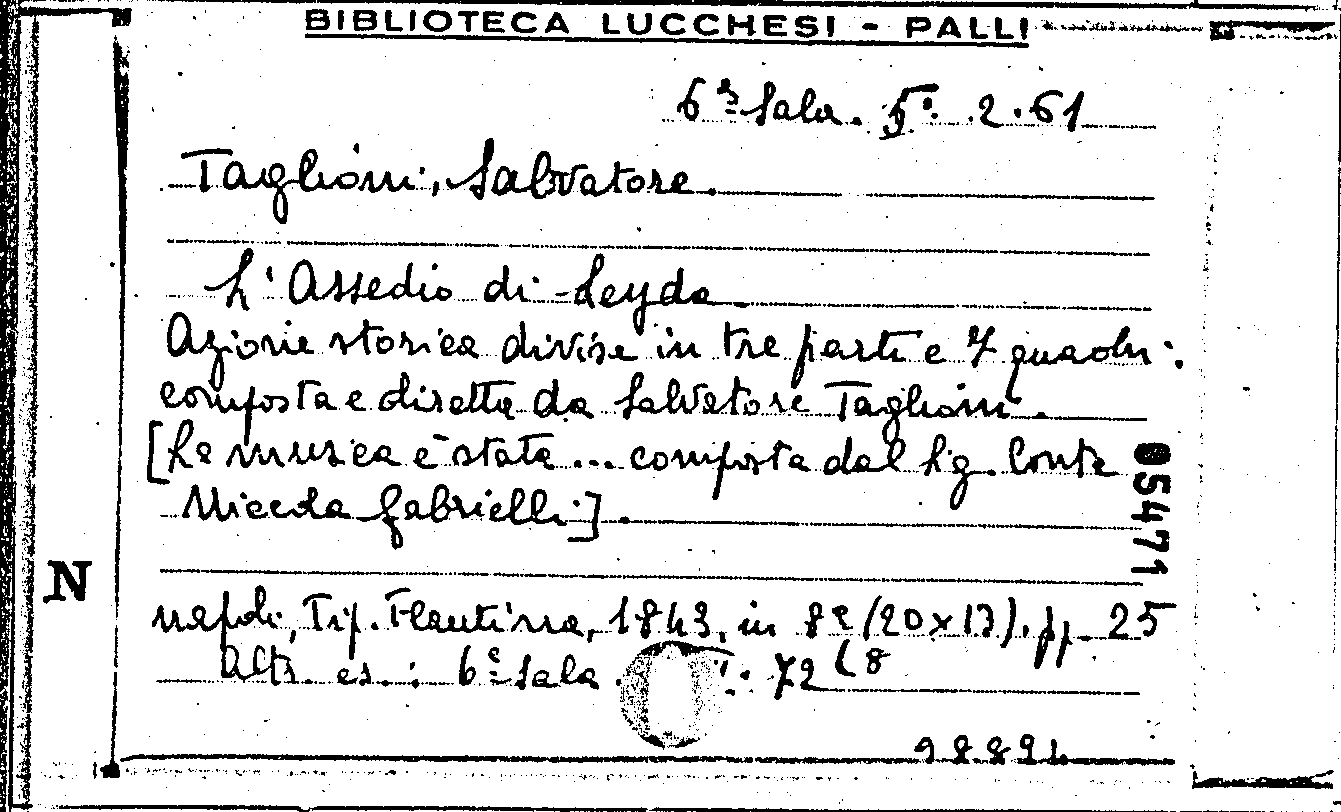 BIBLIOTECA LUCCHESI - PALLI
6ª Sala. 5º. 2.61
Taglioni, Salvatore.
L'Assedio di Leyda
Azione storica divisa in tre parti e 7 quadri.
composta e diretta da Salvatore Taglioni.
[La musica è stata ... composta dal Sig. Conte
Nicola Gabrielli].
05471
N
Napoli, Tip. Flautina, 1843, in 8º (20x13). pp. 25
Altr. es.: 6ª Sala. 72 (8